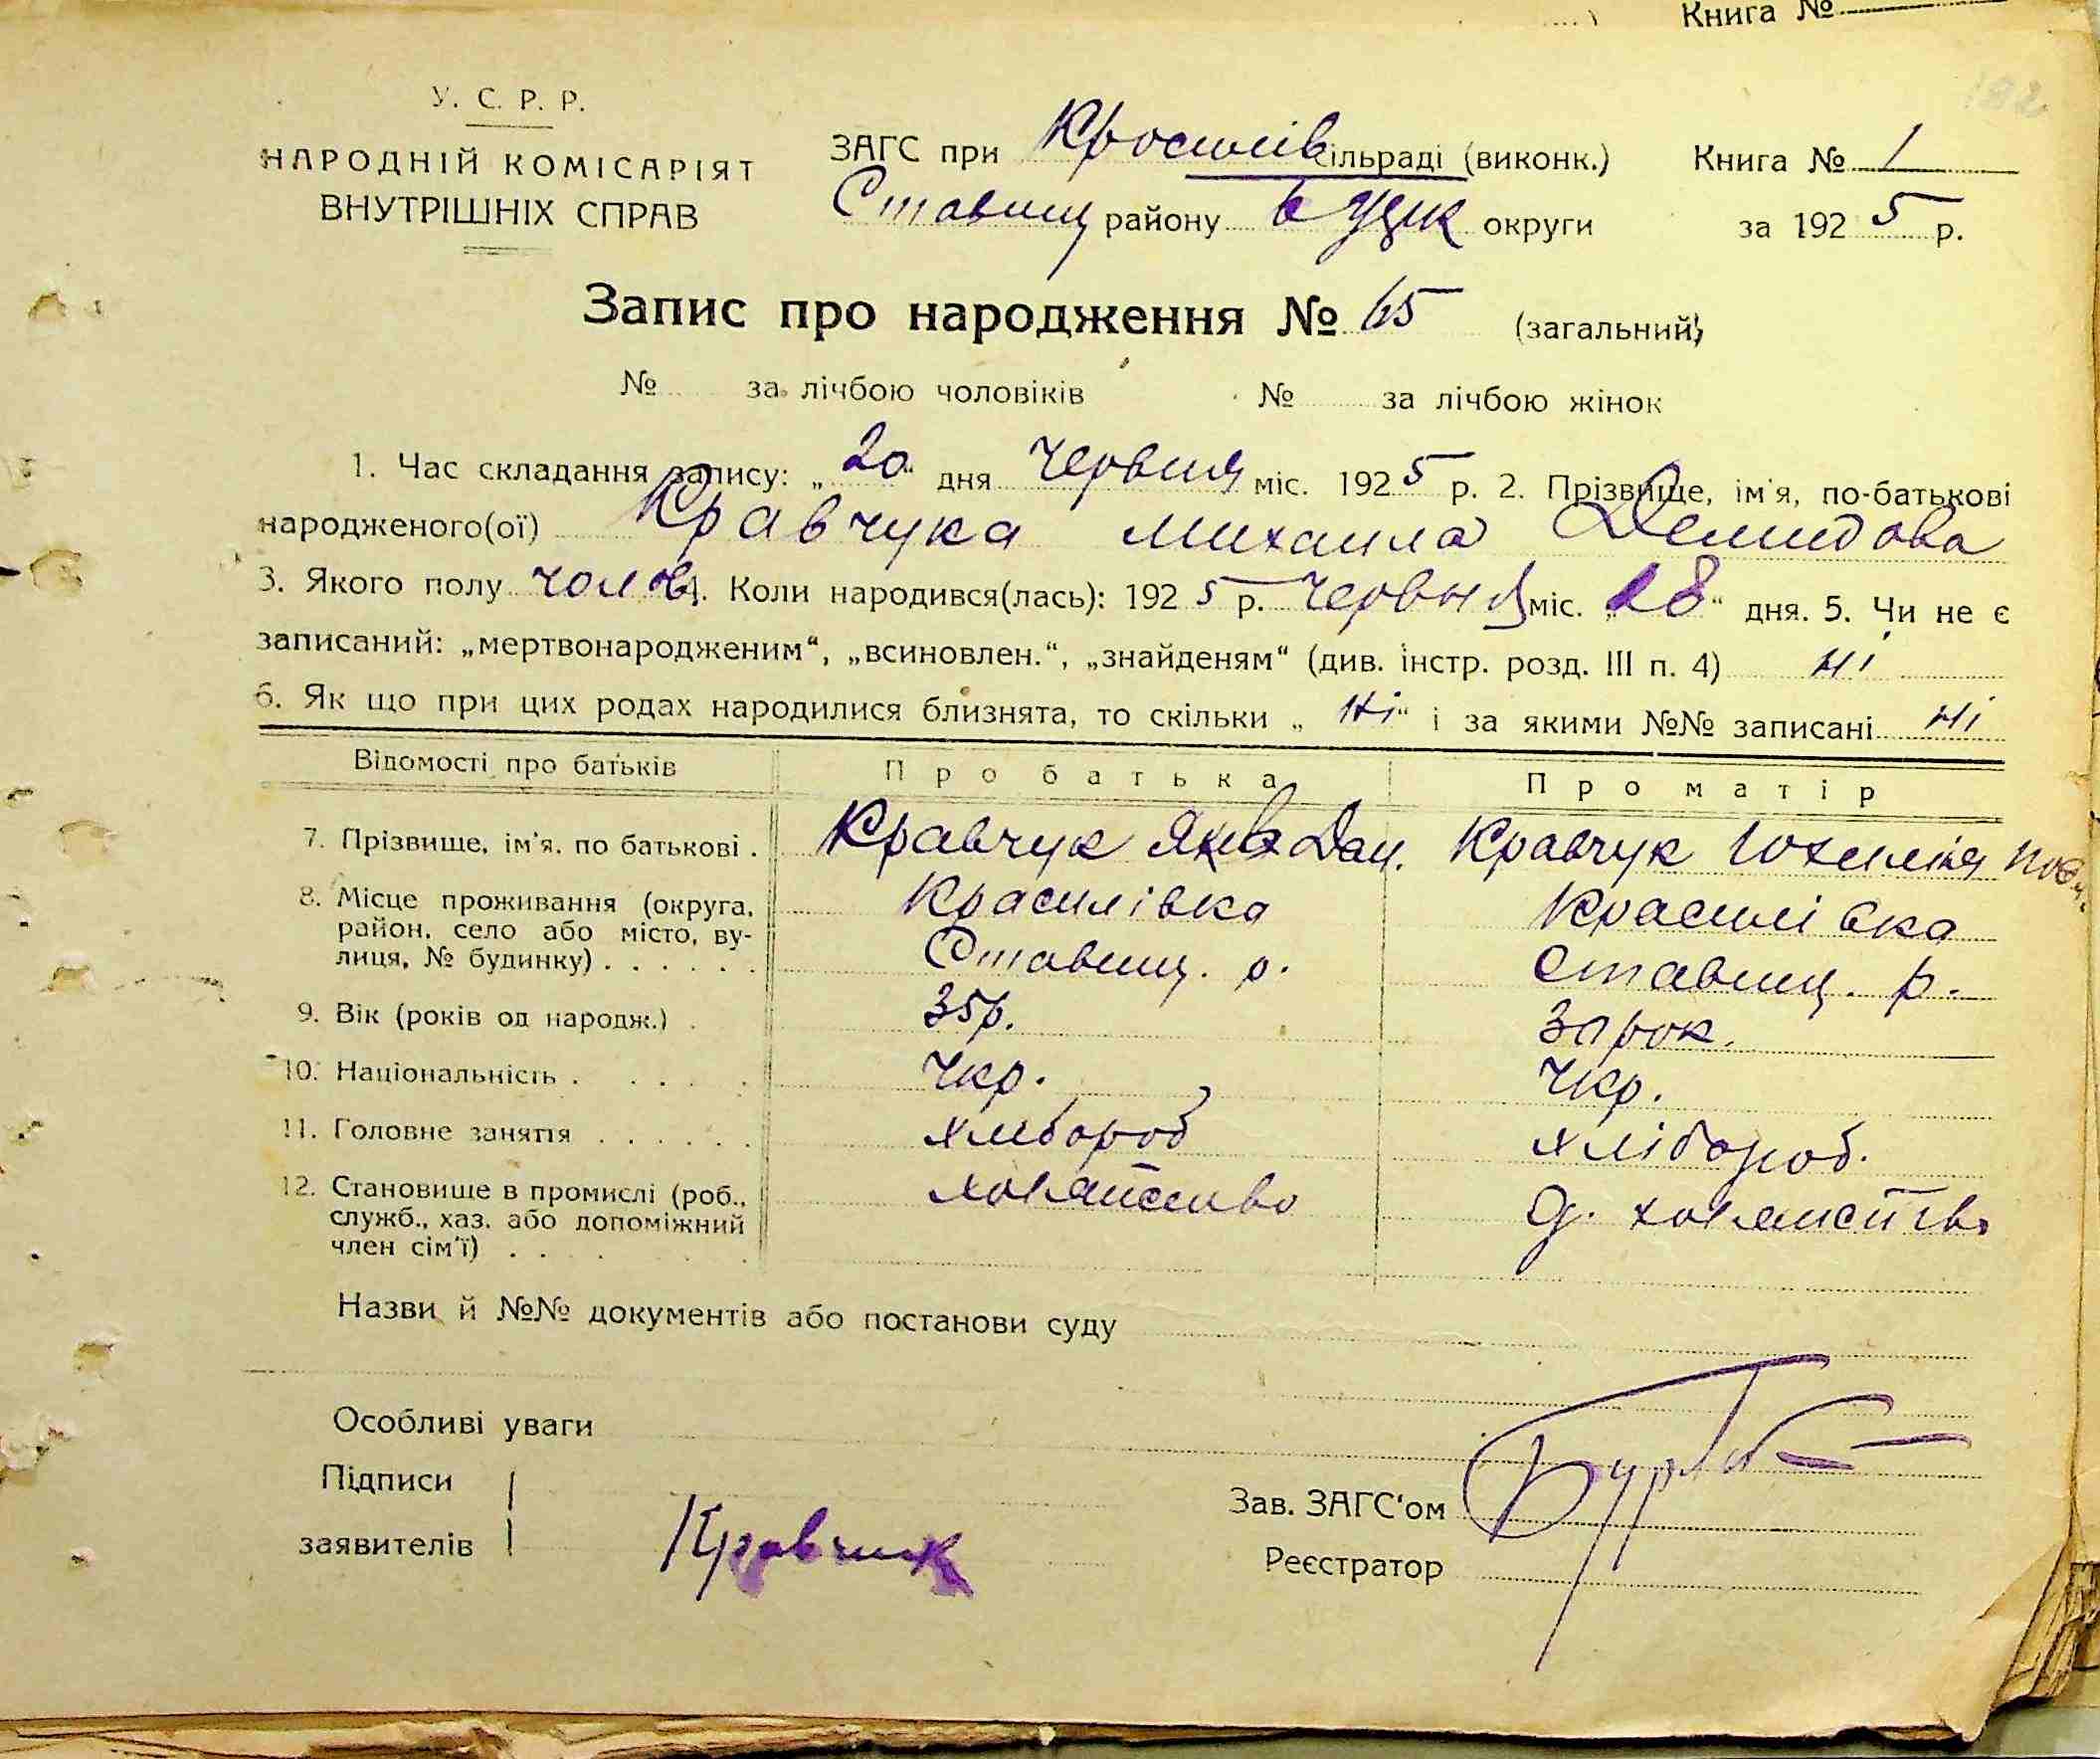 Книга №
У. С. Р. Р.
НАРОДНІЙ КОМІСАРІЯТ
ВНУТРІШНІХ СПРАВ
ЗАГС при Кросилів сільраді (виконк.) Книга № 1
Ставищ району округи за 1925 р.
Запис про народження № 65 (загальний)
№ за лічбою чоловіків № за лічбою жінок
1. Час складання запису: „20“ дня Червня міс. 1925 р. 2. Прізвище, ім'я, по-батькові
народженого(ої) Кравчука Михаила Демидова
3. Якого полу чолов 4. Коли народився(лась): 1925 р. Червня міс. „18“ дня. 5. Чи не є
записаний: „мертвонародженим“, „всиновлен.“, „знайденям“ (див. інстр. розд. III п. 4) ні
6. Як що при цих родах народилися близнята, то скільки „ні“ і за якими №№ записані ні
Відомості про батьків Про батька Про матір
7. Прізвище, ім'я, по батькові . Кравчук Яків Дан. Кравчук
8. Місце проживання (округа, Красилівка Красилівка
район, село або місто, ву- Ставищ. р. Ставищ. р.
лиця, № будинку) . . . . . .
9. Вік (років од народж.) . 35р. 30 рок.
10. Національність . . . . . Укр. Укр.
11. Головне заняття . . . . . . хлібороб хлібороб.
12. Становище в промислі (роб.,
служб., хаз. або допоміжний
член сім'ї) . . . .
Назви й №№ документів або постанови суду
Особливі уваги
Підписи
заявителів Кравчик
Зав. ЗАГС'ом
Реєстратор